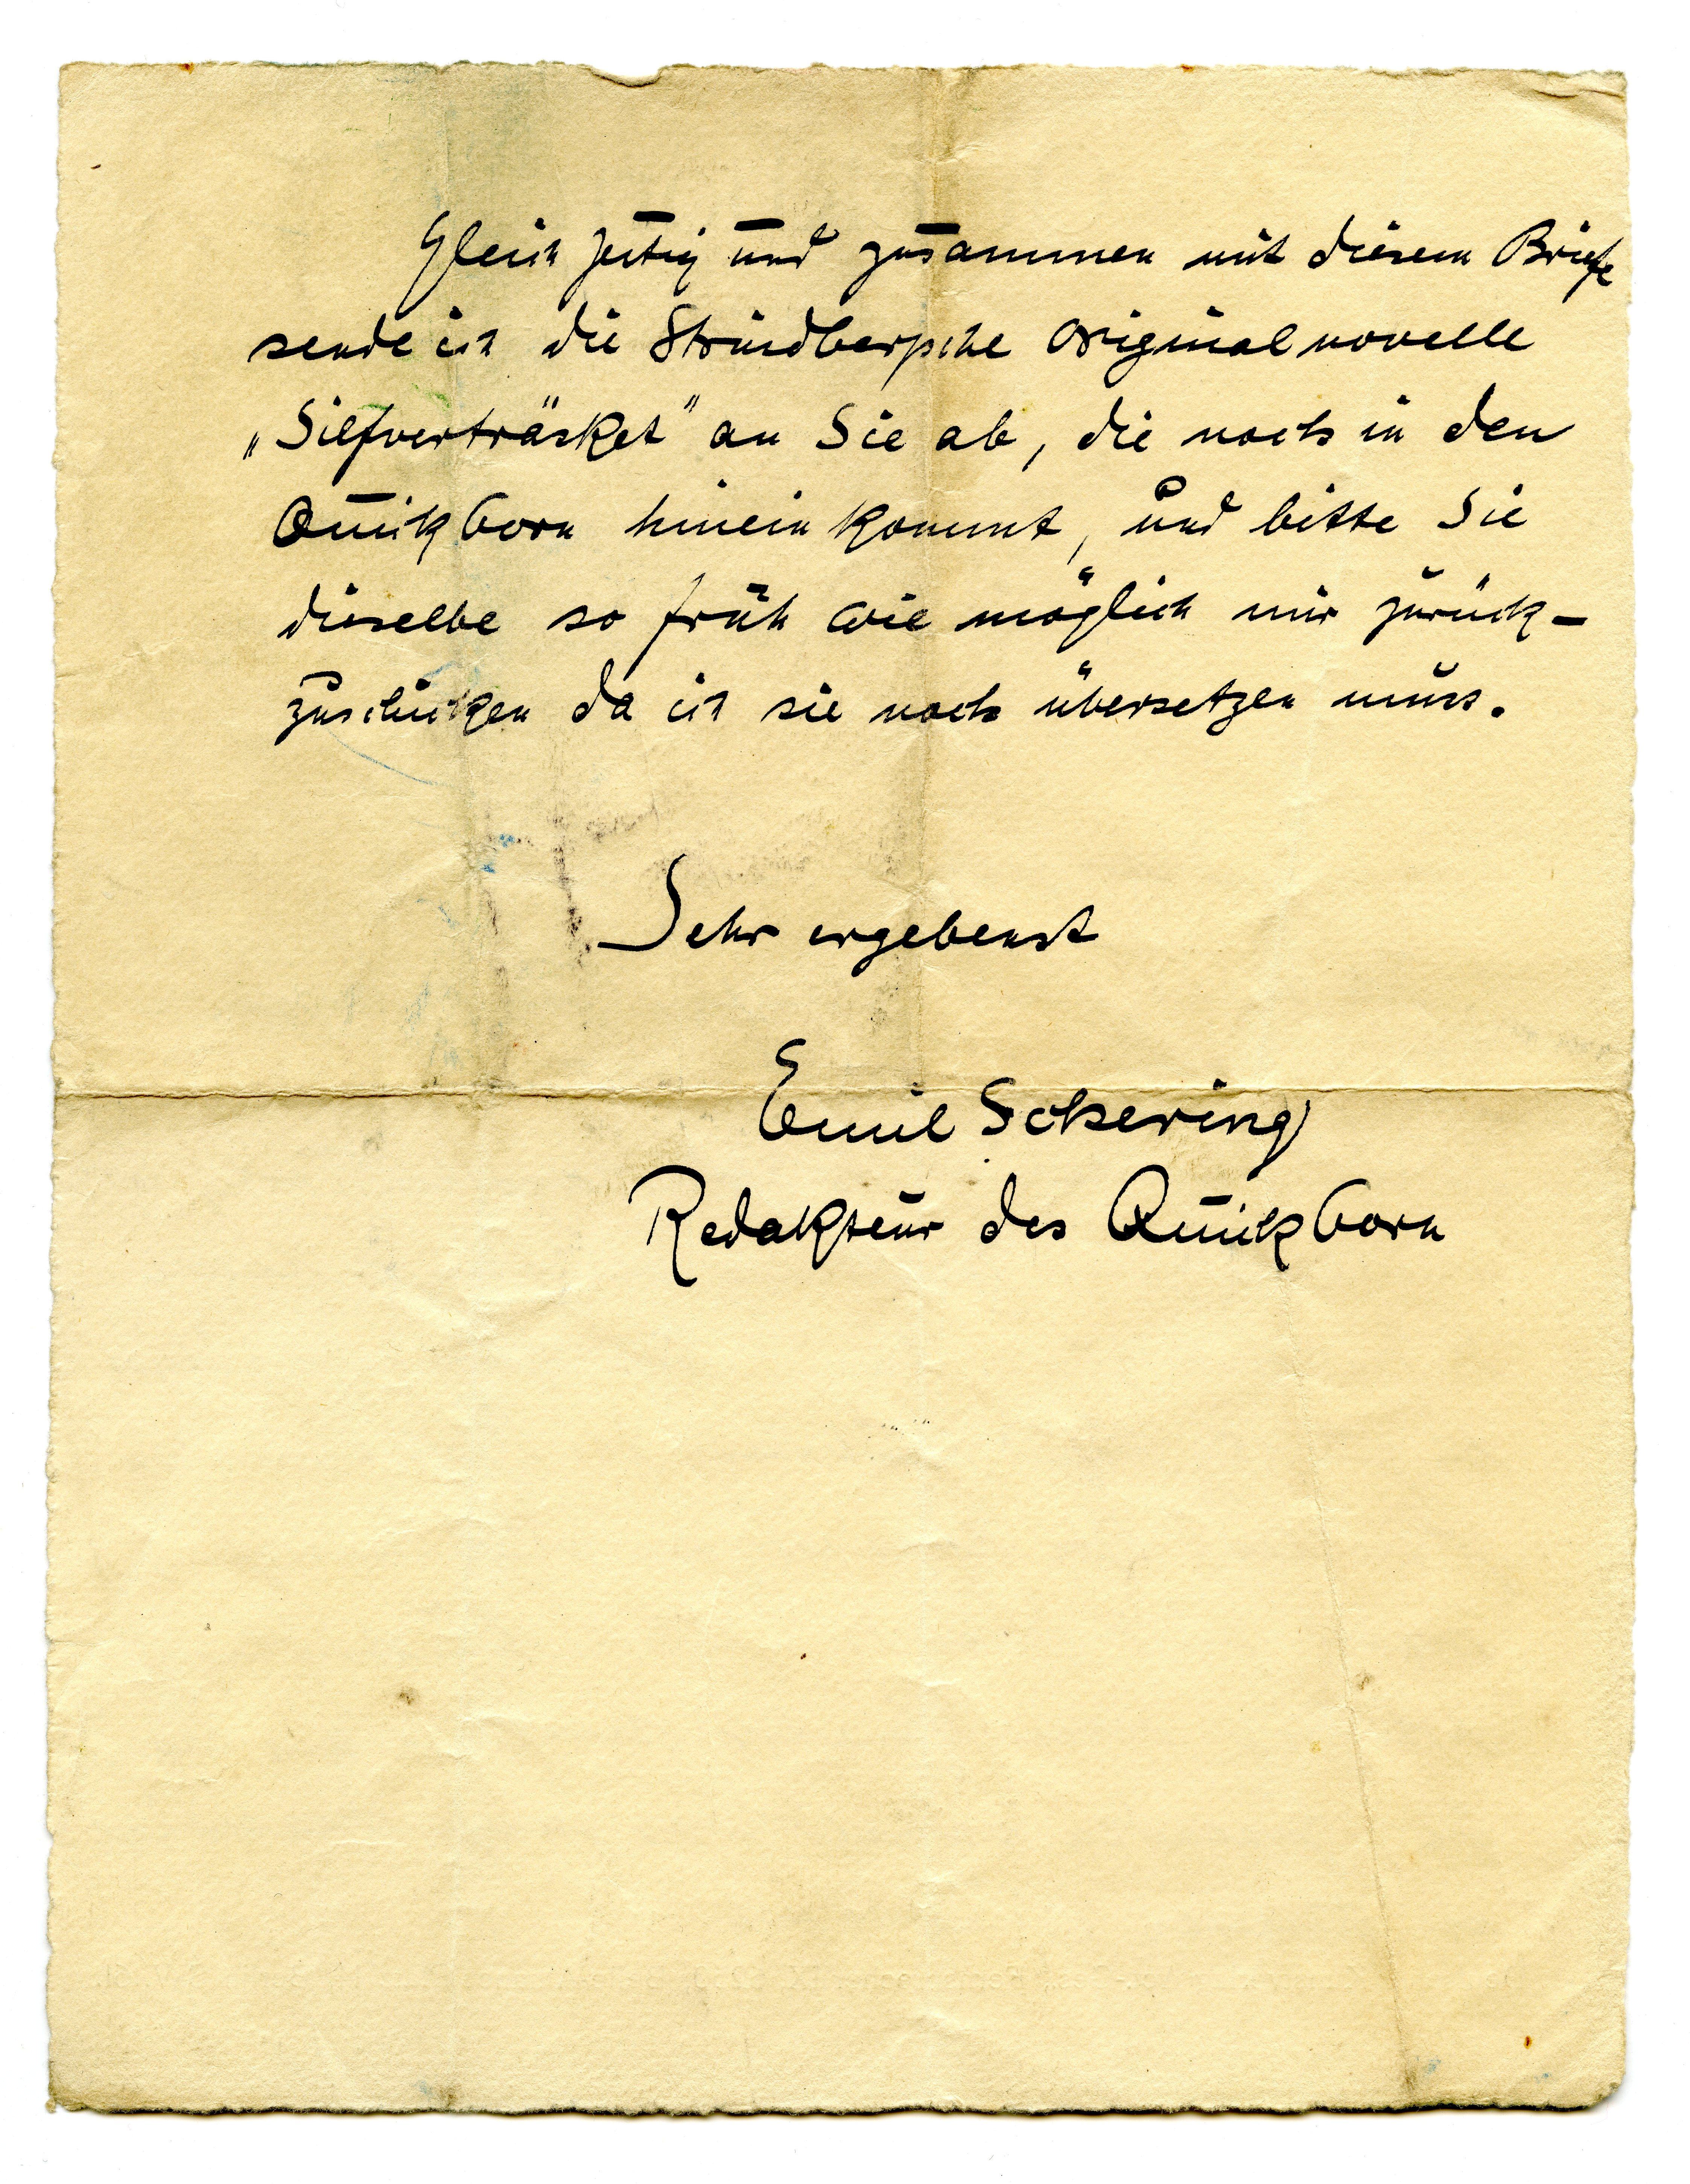 Gleichzeitig und zusammen mit diesem Briefe
sende ich die Strindbergsche Originalnovelle
„Silfverträsket" an Sie ab, die noch in den
Quickborn hineinkommt, und bitte Sie
dieselbe so früh wie möglich mir zurück-
zuschicken da ich sie noch übersetzen muss.
Sehr ergebenst
Emil Schering
Redakteur des Quickborn